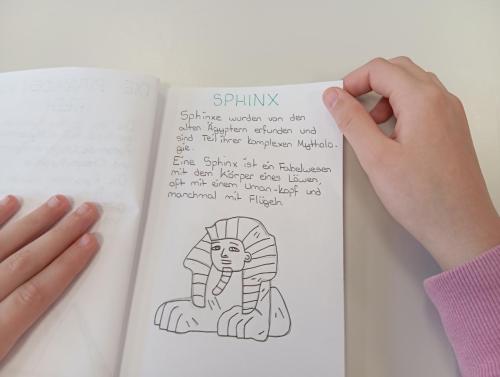 SPHINX
Sphinxe wurden von den
alten Ägyptern erfunden und
sind Teil ihrer komplexen Mytholo-
gie.
Eine Sphinx ist ein Fabelwesen
mit dem Körper eines Löwen,
oft mit einem Uman-kopf und
manchmal mit Flügeln.